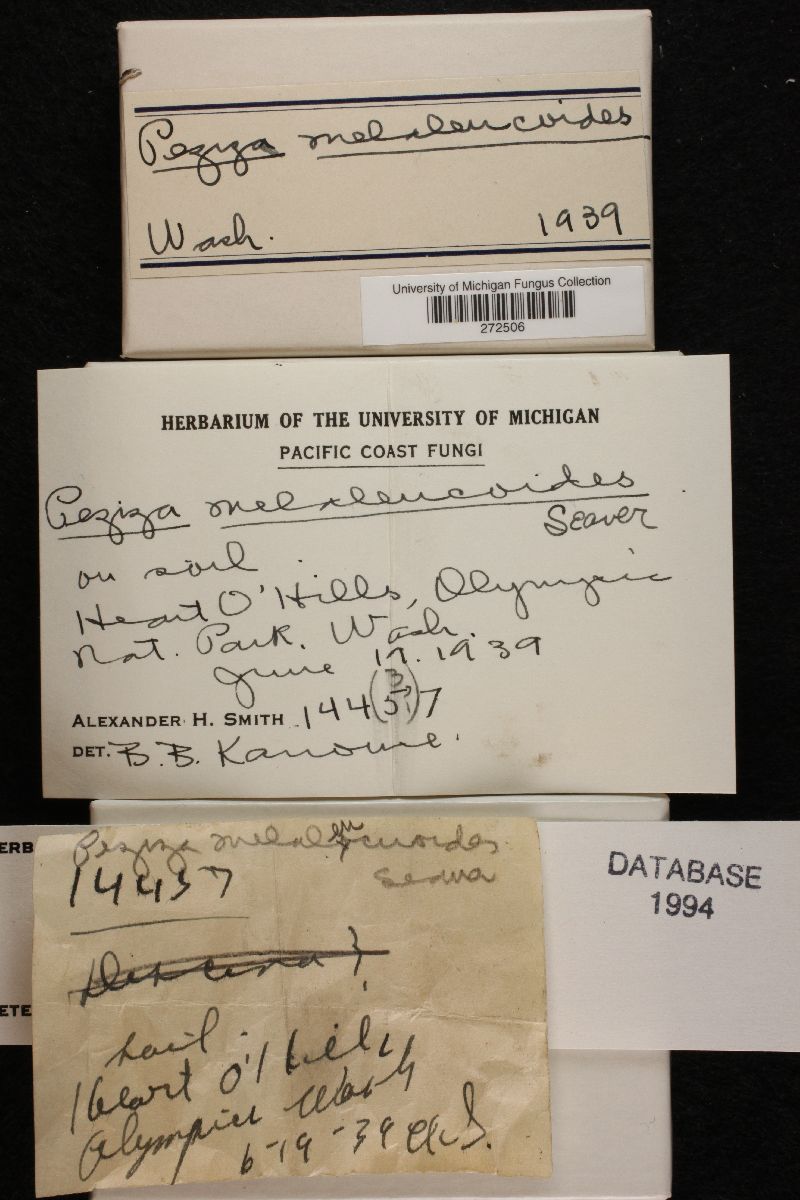 Peziza melaleucoides
Wash. 1939
University of Michigan Fungus Collection
272506
HERBARIUM OF THE UNIVERSITY OF MICHIGAN
PACIFIC COAST FUNGI
Peziza melaleucoides
Seaver
on soil
Heart O'Hills, Olympic
Nat. Park. Wash.
June 19. 1939
ALEXANDER H. SMITH 144(5)7
DET. B.B. Kanouse.
Peziza melaleucoides
Seaver
14437
soil.
Heart O'Hills
Olympic Wash
6-19-39 AHS.
DATABASE
1994
ERB
ETE